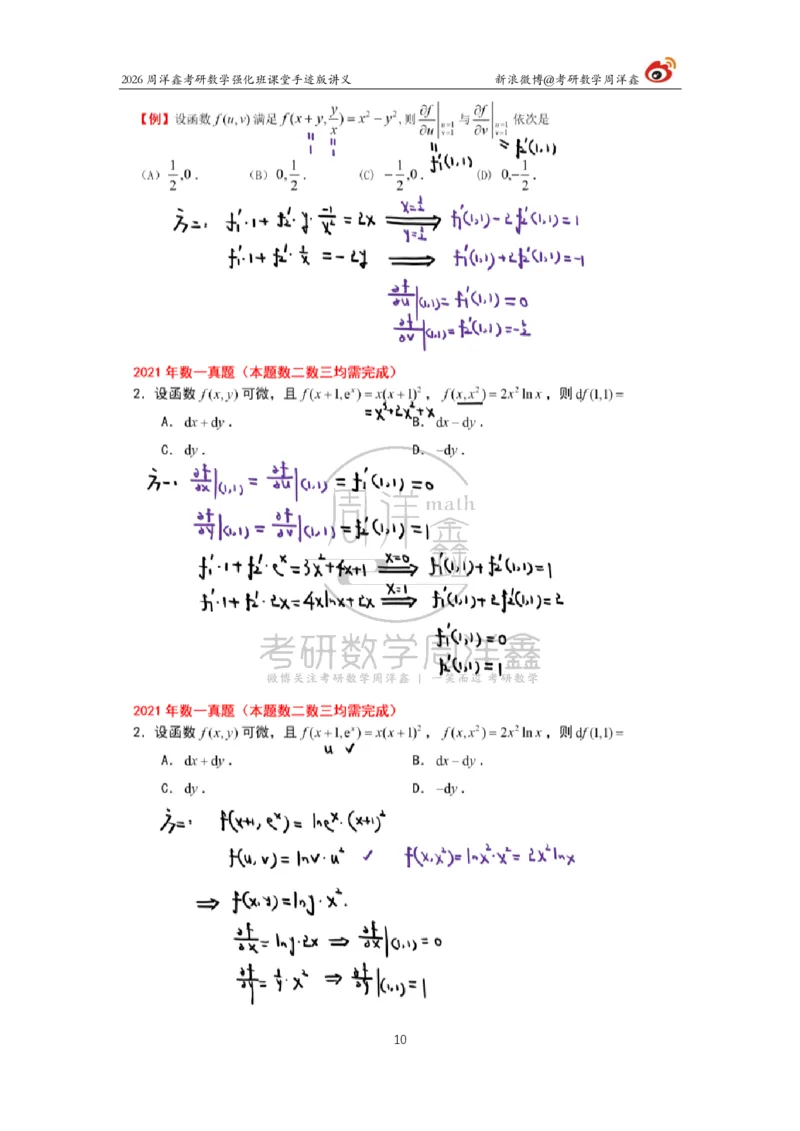 2026 周洋鑫考研数学强化班课堂手迹版讲义 新浪微博@考研数学周洋鑫
【例】设函数 f(u,v) 满足 f(x+y, y/x) = x² − y², 则 ∂f/∂u|u=1 v=1 与 ∂f/∂v|u=1 v=1 依次是
= 1 = 1 = f₁'(1,1) = f₂'(1,1)
(A) 1/2, 0. (B) 0, 1/2. (C) −1/2, 0. (D) 0, −1/2.
方二: f₁'·1 + f₂'·y·(−1/x²) = 2x ⟹ (x=1/2, y=1/2) f₁'(1,1) − 2f₂'(1,1) = 1
f₁'·1 + f₂'·1/x = −2y ⟹ f₁'(1,1) + 2f₂'(1,1) = −1
∂f/∂u|(1,1) = f₁'(1,1) = 0
∂f/∂v|(1,1) = f₂'(1,1) = −1/2
2021 年数一真题（本题数二数三均需完成）
2. 设函数 f(x,y) 可微，且 f(x+1,eˣ) = x(x+1)²，f(x,x²) = 2x² ln x，则 df(1,1) =
= x³+2x²+x
A. dx + dy. B. dx − dy.
C. dy. D. −dy.
方一: ∂f/∂x|(1,1) = ∂f/∂u|(1,1) = f₁'(1,1) = 0
∂f/∂y|(1,1) = ∂f/∂v|(1,1) = f₂'(1,1) = 1
f₁'·1 + f₂'·eˣ = 3x²+4x+1 ⟹ (x=0) f₁'(1,1) + f₂'(1,1) = 1
f₁'·1 + f₂'·2x = 4xlnx + 2x ⟹ (x=1) f₁'(1,1) + 2f₂'(1,1) = 2
f₁'(1,1) = 0
f₂'(1,1) = 1
周洋鑫 math
考研数学周洋鑫
微博关注考研数学周洋鑫 | 一笑而过 考研数学
2021 年数一真题（本题数二数三均需完成）
2. 设函数 f(x,y) 可微，且 f(x+1,eˣ) = x(x+1)²，f(x,x²) = 2x² ln x，则 df(1,1) =
u v
A. dx + dy. B. dx − dy.
C. dy. D. −dy.
方二: f(x+1, eˣ) = lneˣ·(x+1)²
f(u,v) = lnv·u² ✓ f(x,x²) = lnx²·x² = 2x²lnx
⟹ f(x,y) = lny·x².
∂f/∂x = lny·2x ⟹ ∂f/∂x|(1,1) = 0
∂f/∂y = 1/y·x² ⟹ ∂f/∂y|(1,1) = 1
10